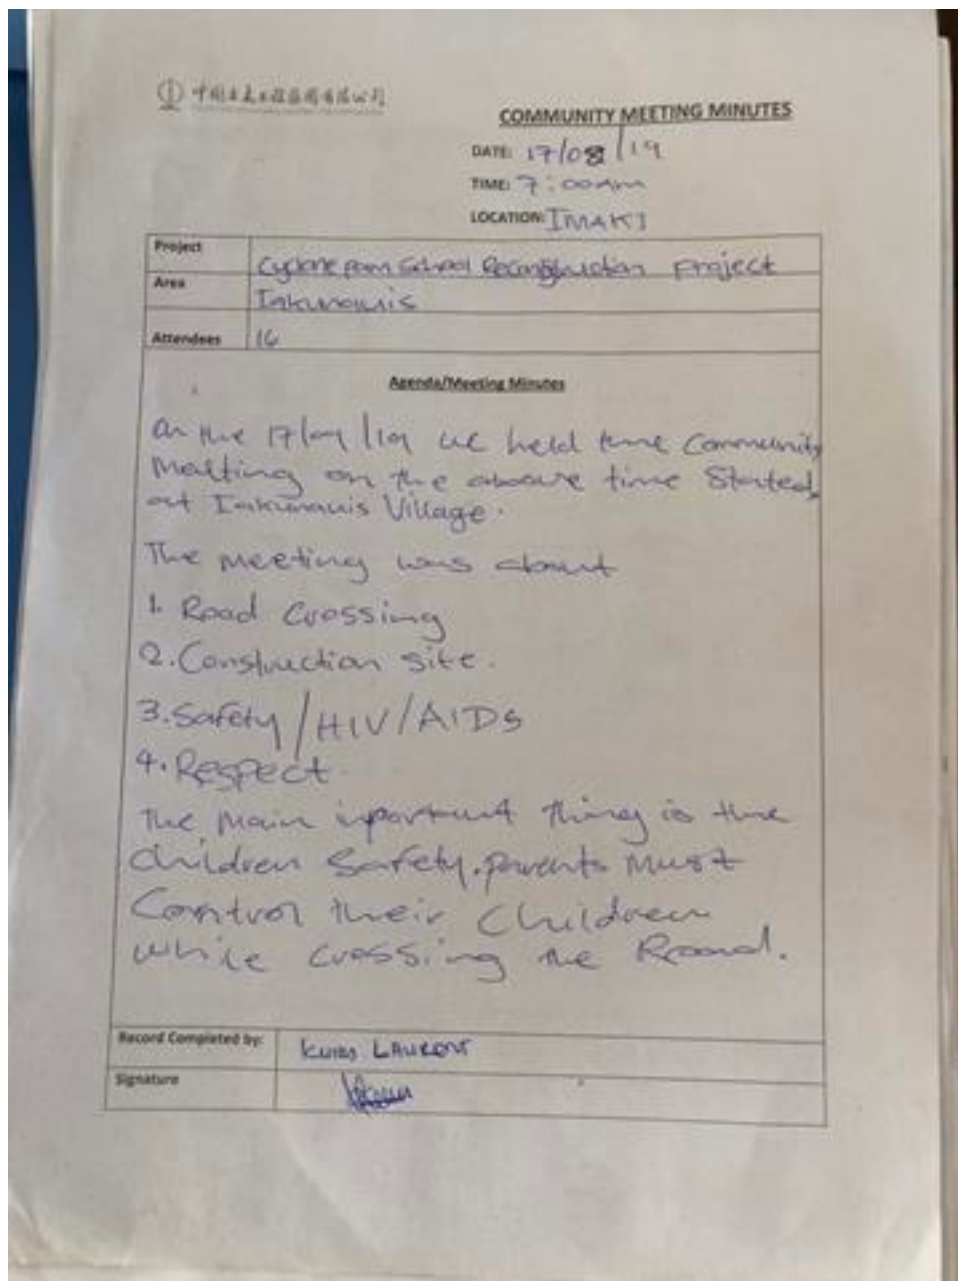 中国土木工程集团有限公司
COMMUNITY MEETING MINUTES
DATE: 17/08/19
TIME: 7:00am
LOCATION: IMAKI
Project
Cyclone pam School Reconstruction project
Area
Iakunauis
Attendees 16
Agenda/Meeting Minutes
On the 17/09/19 we held the Community
Meeting on the above time Stated,
at Iakunauis Village.
The meeting was about
1. Road Crossing
2. Construction site.
3. Safety/HIV/AIDs
4. Respect.
The main inportant thing is the
children safety. parents Must
Control their Children
while crossing the Road.
Record Completed by: LAURENT
Signature